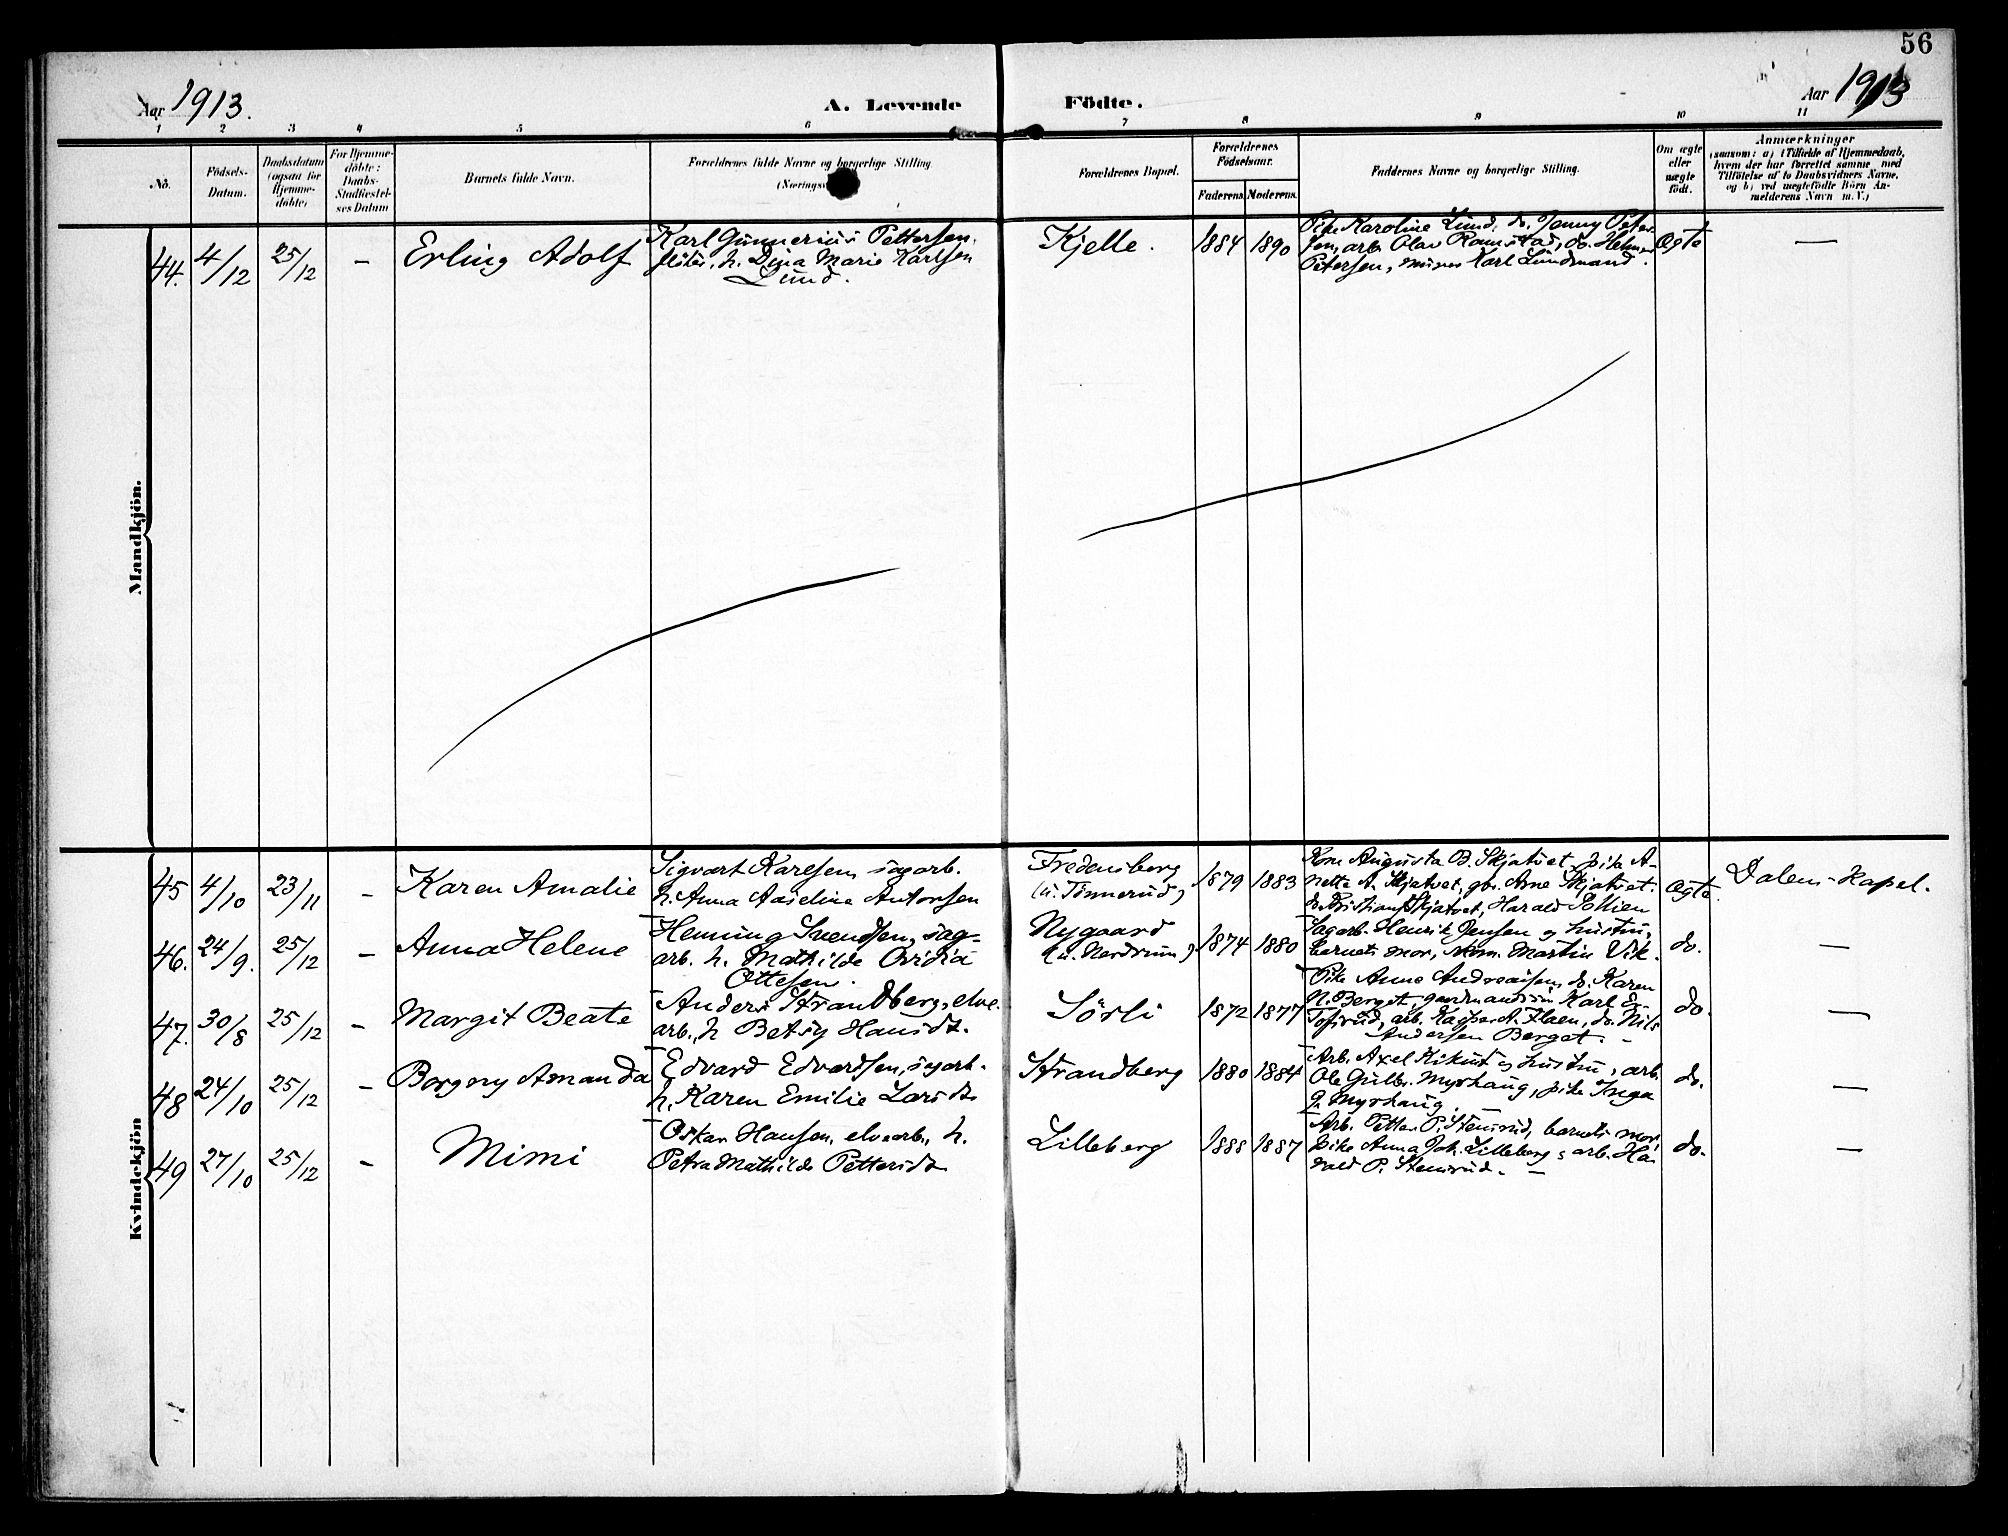 56
Aar 1913.
A. Levende
Födte.
Aar 1913
1 2 3 4 5 6 7 8 9 10 11
No.
Födsels-
Datum.
Daabsdatum
(ogsaa for
Hjemme-
döbte)
For Hjemme-
döbte:
Daabs-
Stadfæstel-
ses Datum
Barnets fulde Navn.
Forældrenes fulde Navne og borgerlige Stilling.
Forældrenes Bopæl.
Forældrenes
Födselsaar.
Faderens Moderens.
Faddernes Navne og borgerlige Stilling.
Om ægte
eller
uægte
födt.
Anmærkninger
(saasom: a) i Tilfælde af Hjemmedaab,
hvem der har forrettet samme, med
Tilföielse af to Daabsvidners Navne,
og b) ved uægtefödte Börn An-
melderens Navn m. V.)
Mandkjön.
44. 4/12 25/12 – Erling Adolf
Karl Gunnerius Pettersen,
fløter, h. Dina Marie Karlsen
Lund.
Kjelle. 1884 1890
Pike Karoline Lund, do. Jenny Peter-
sen, arb. Olav Ramstad, do. Helmer
Petersen, Karl Lundmand.
Ægte —
Kvindekjön
45 4/10 23/11 – Karen Amalie
Sigvart Karlsen, sagarb.
h. Anna Aaseline Antonsen
Fredensberg
(u. Tinnerud) 1879 1883
Kone Augusta B. Skjatvet, pike A-
nette A. Skjatvet, gbr. Arne Skjatvet,
do. Kristian Skjatvet, Harald Sollien
Ægte. Dalens-Kapel.
46. 24/9. 25/12 – Anna Helene
Henning Svendsen, sag-
arb. h. Mathilde Ovidia
Ottesen.
Nygaard
(u. Nordrum) 1874 1880
Sagarb. Henrik Jensen og hustru,
barnets mor, Martin Vik.
do. —
47. 30/8 25/12 – Margit Beate
Anders Strandberg, elve-
arb., h Betsy Hansdt.
Sörli 1872 1877
Pike Anne Andreassen, do. Karen
N. Berget, gaardmandssøn Karl E.
Tofsrud, arb. Kasper A. Flaen, do. Nils
Andersen Berget. –
do. —
48 24/10 25/12 – Borgny Amanda
Edvard Edvardsen, sgarb.
h. Karen Emilie Larsdt.
Strandberg 1880 1884
Arb. Axel Kikut og hustru, arb.
Ole Gulbr. Myrhaug, pike Inga
G. Myrhaug.
do. —
49 27/10 25/12 – Mimi
Oskar Hansen, elvearb., h.
Petra Mathilde Pettersdt.
Lilleberg 1888 1887
Arb. Petter P. Stensrud, barnets mor,
pike Anna Joh. Lilleberg, arb. Ha-
rald P. Stensrud. –
do. —